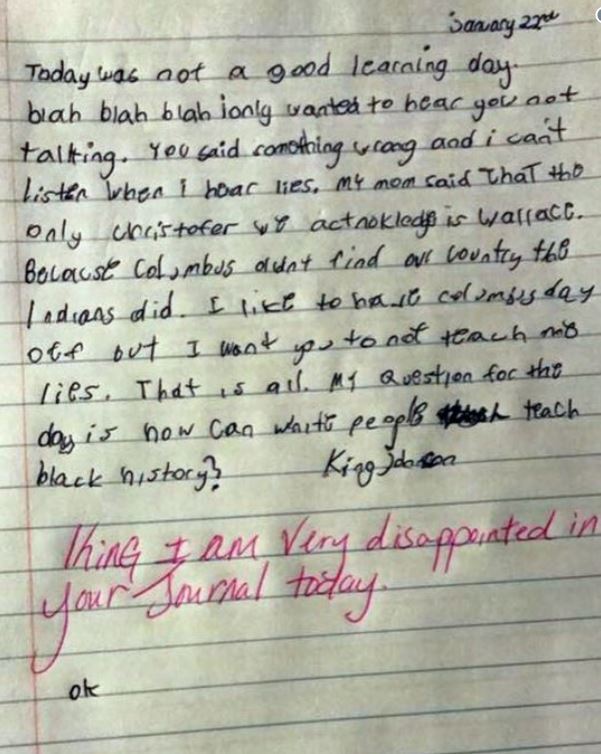 January 22nd
Today was not a good learning day.
blah blah blah i only wanted to hear you not
talking. You said somothing wrong and i can't
listen when i hear lies. My mom said that the
only christofer we acknokledge is Wallace.
Because Columbus didnt find our country the
Indians did. I like to have columbus day
off but I want you to not teach me
lies. That is all. My question for the
day is how can white people teach
black history? King Johnson
King I am very disappointed in
your Journal today.
ok